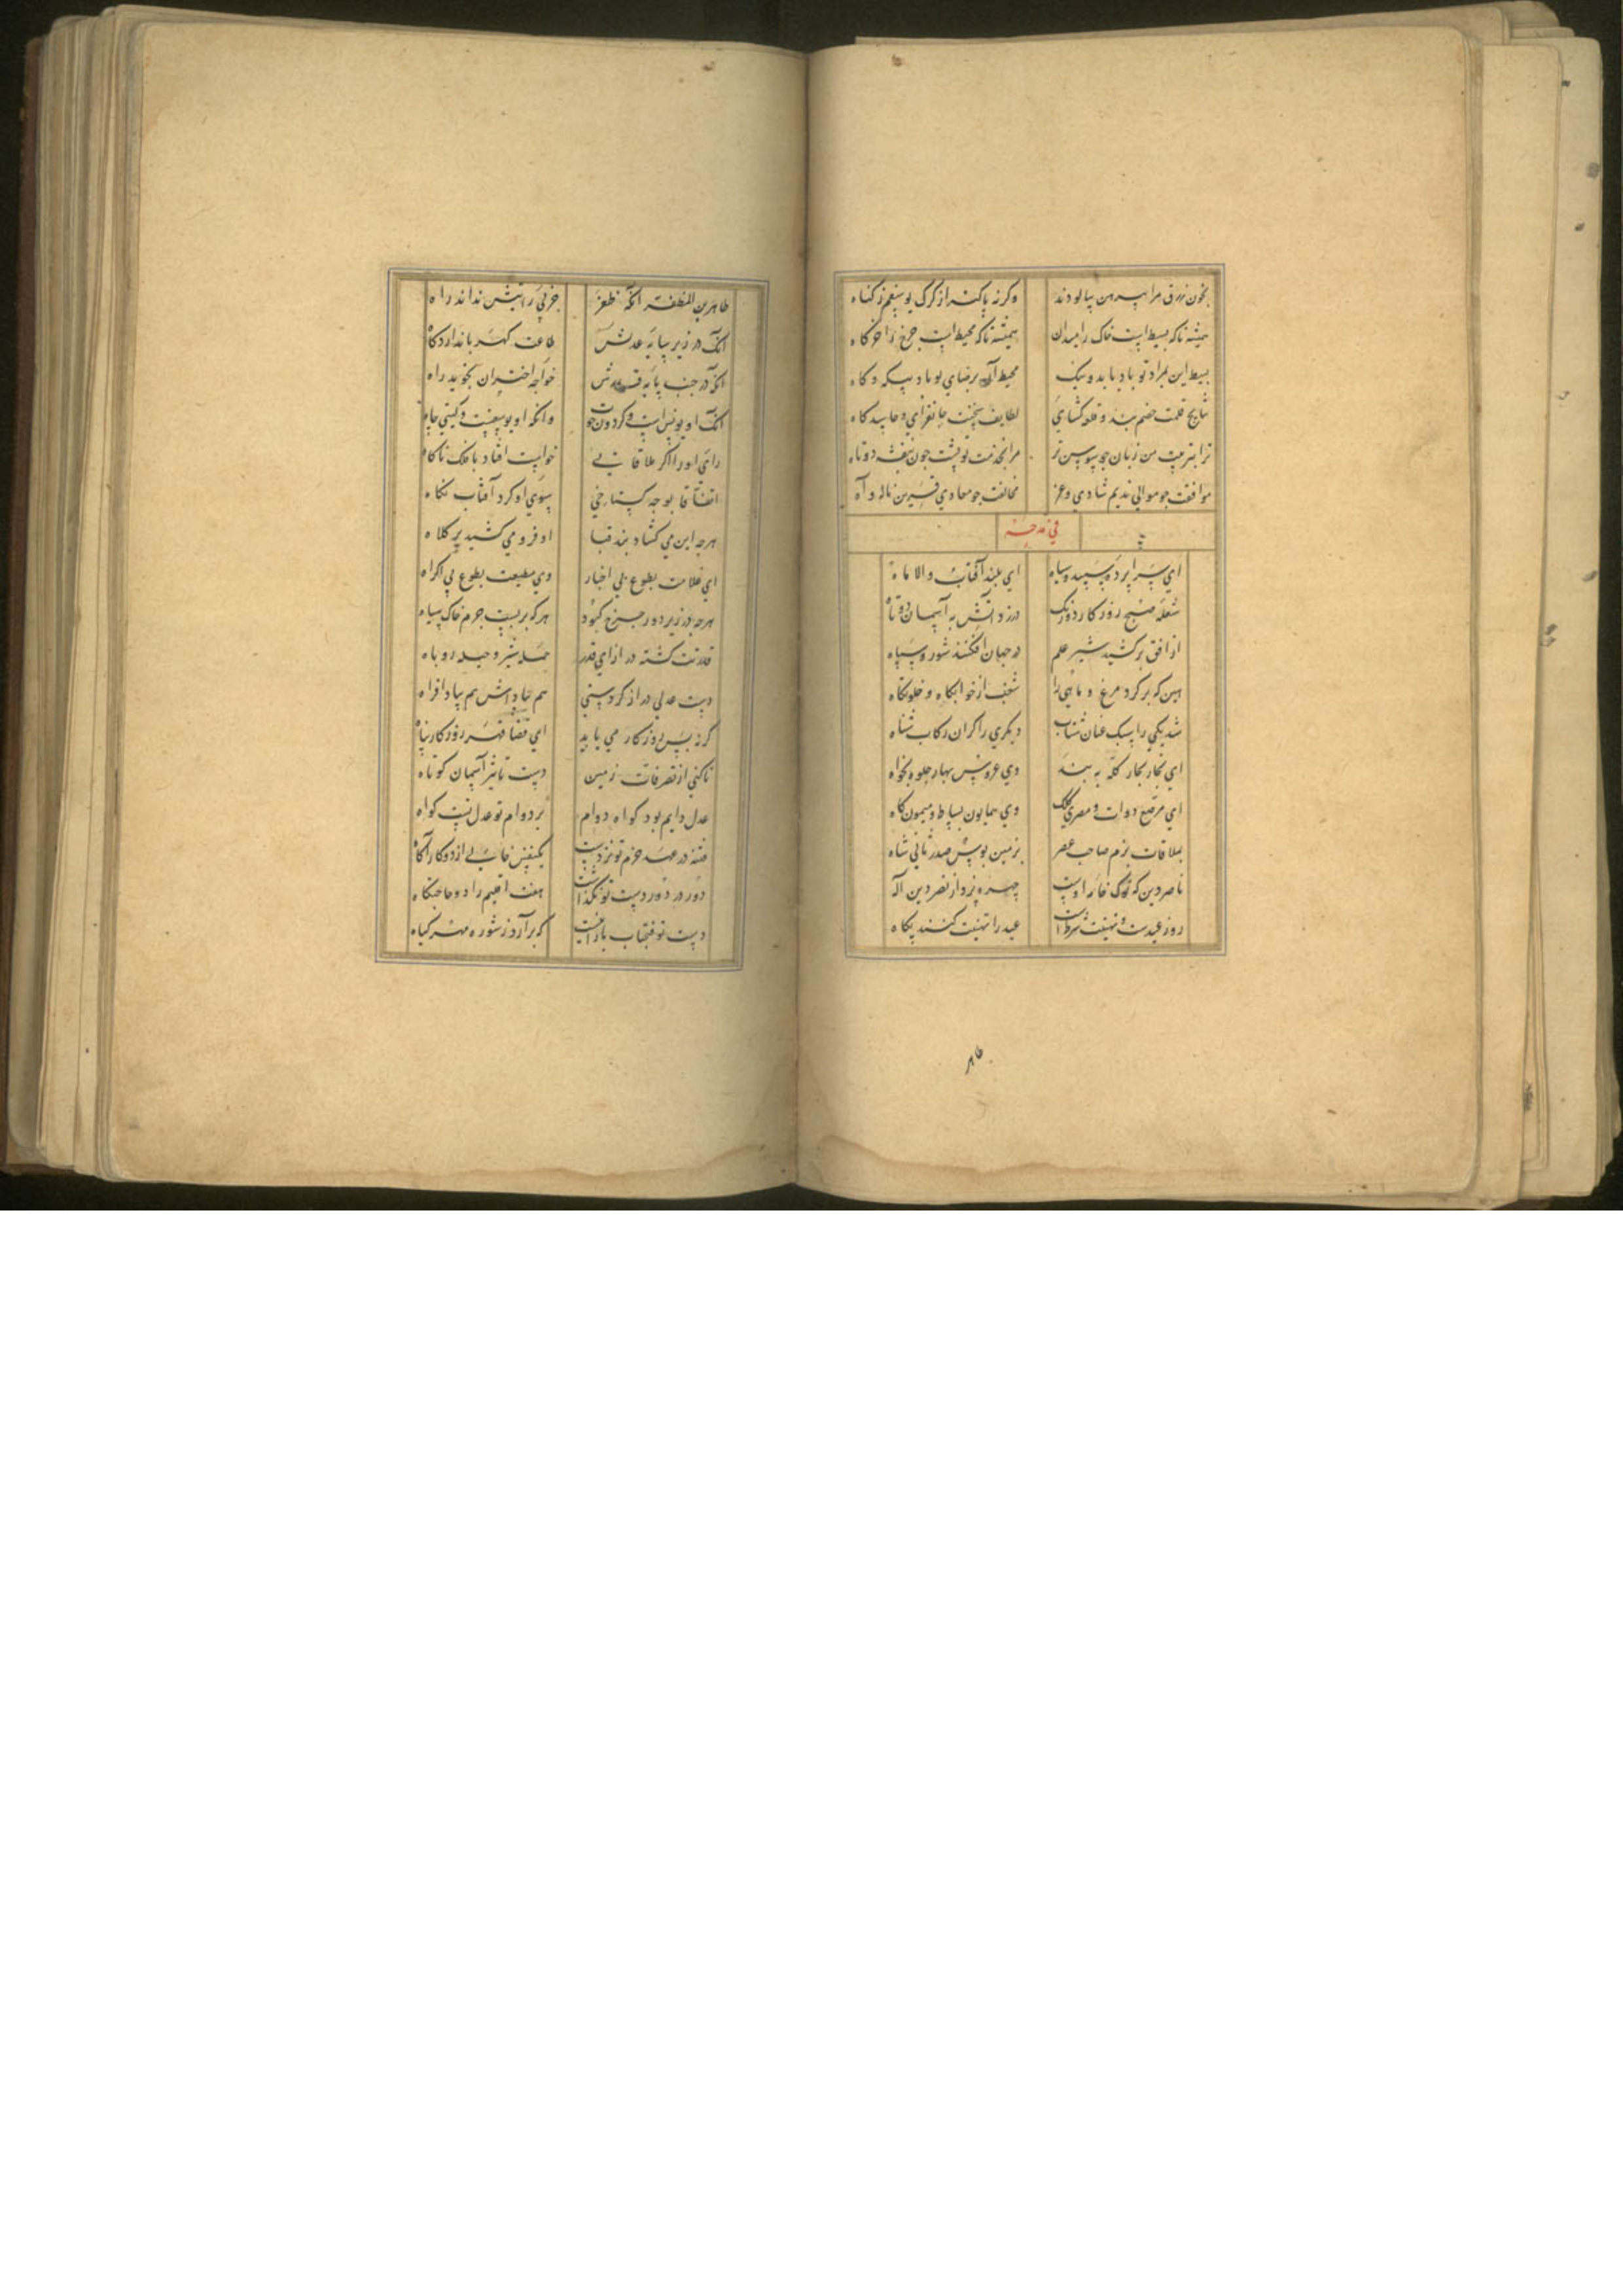 بخون زرق مرا پیرهن بیالودند وکرنه پاکتر از کرک یوسفم ز کناه
همیشه تا که بسیط است خاک را میدان همیشه تا که محیط است چرخ را خرکاه
بسیط این بمراد تو باد با بد و نیک محیط آن برضای تو باد بیکه و کاه
نتایج قلمت خصم بند و قلعه کشای لطایف سخنت جانفزای و حاسد کاه
ترا بتربیت من زبان چو سوسن تر مرا بخدمت تو پشت چون بنفشه دوتاه
موافقت چو موالی ندیم شادی و عز مخالفت چو معادی قرین ناله و آه
في مدحه
ای سراپرده سپید و سیاه ای بلند آفتاب و الا ماه
شعله صبح روزکار دورنک درزد آتش به آسمان دوتاه
از افق برکشید شیر علم در جهان افکنند شور و سپاه
بین که برکرد مرغ و ماهی را شغب از خوابکاه و خلوتکاه
شد یکی را سبک عنان شتاب دیکری را کران رکاب شناه
ای بخار بحار کله به بند وی عروس بهار جلوه بخواه
ای مرصع دوات و مصری کلک وی همایون بساط و میمون کاه
بملاقات بزم صاحب عصر بزمین بوس صدر ثانی شاه
ناصر دین که نوک خامه اوست چهره پرداز نصر دین اله
روز عیدست و تهنیت شرطست عید را تهنیت کنند بکاه
طاهر
طاهر بن المظفر آنکه ظفر جز پی رایتش نداند راه
آنک در زیر سایه عدلش طاعت کهربا ندارد کاه
آنکه در جنب پایه قدرش خواجه اختران نجوید راه
آنک او یونس است و کردون حوت وانکه او یوسفست و کیتی چاه
رای او را اکر ملاقاتی خواست افتاد با فلک ناکاه
اتفاقا بوجه کستاخی بسوی او کرد آفتاب نکاه
هرچه این می کشاد بند قبا او فرو می کشید پر کلاه
ای غلامت بطوع بی اجبار وی مطیعت بطوع بی اکراه
هرچه در زیر دور چرخ کبود هرکه بر پشت جرم خاک سیاه
قدرتت کشته در ازای قدر حمله شیر و حیله روباه
دست عدلی دراز کردستی هم بپاداش هم ببادافراه
کرنه بس روزکار می یابد ای قضا قهر روزکار پناه
تا کنی از تصرفات زمین دست تاثیر آسمان کوتاه
عدل دایم بود کواه دوام بر دوام تو عدل تست کواه
فتنه در عهد حزم تو نزدست یکنفس خالی از دو کارآکاه
دور در دور دست تو نکذاشت هفت اقلیم را دو حاجتکاه
دست تو فتحباب بارانیست که برآرد ز شوره مهر کیاه